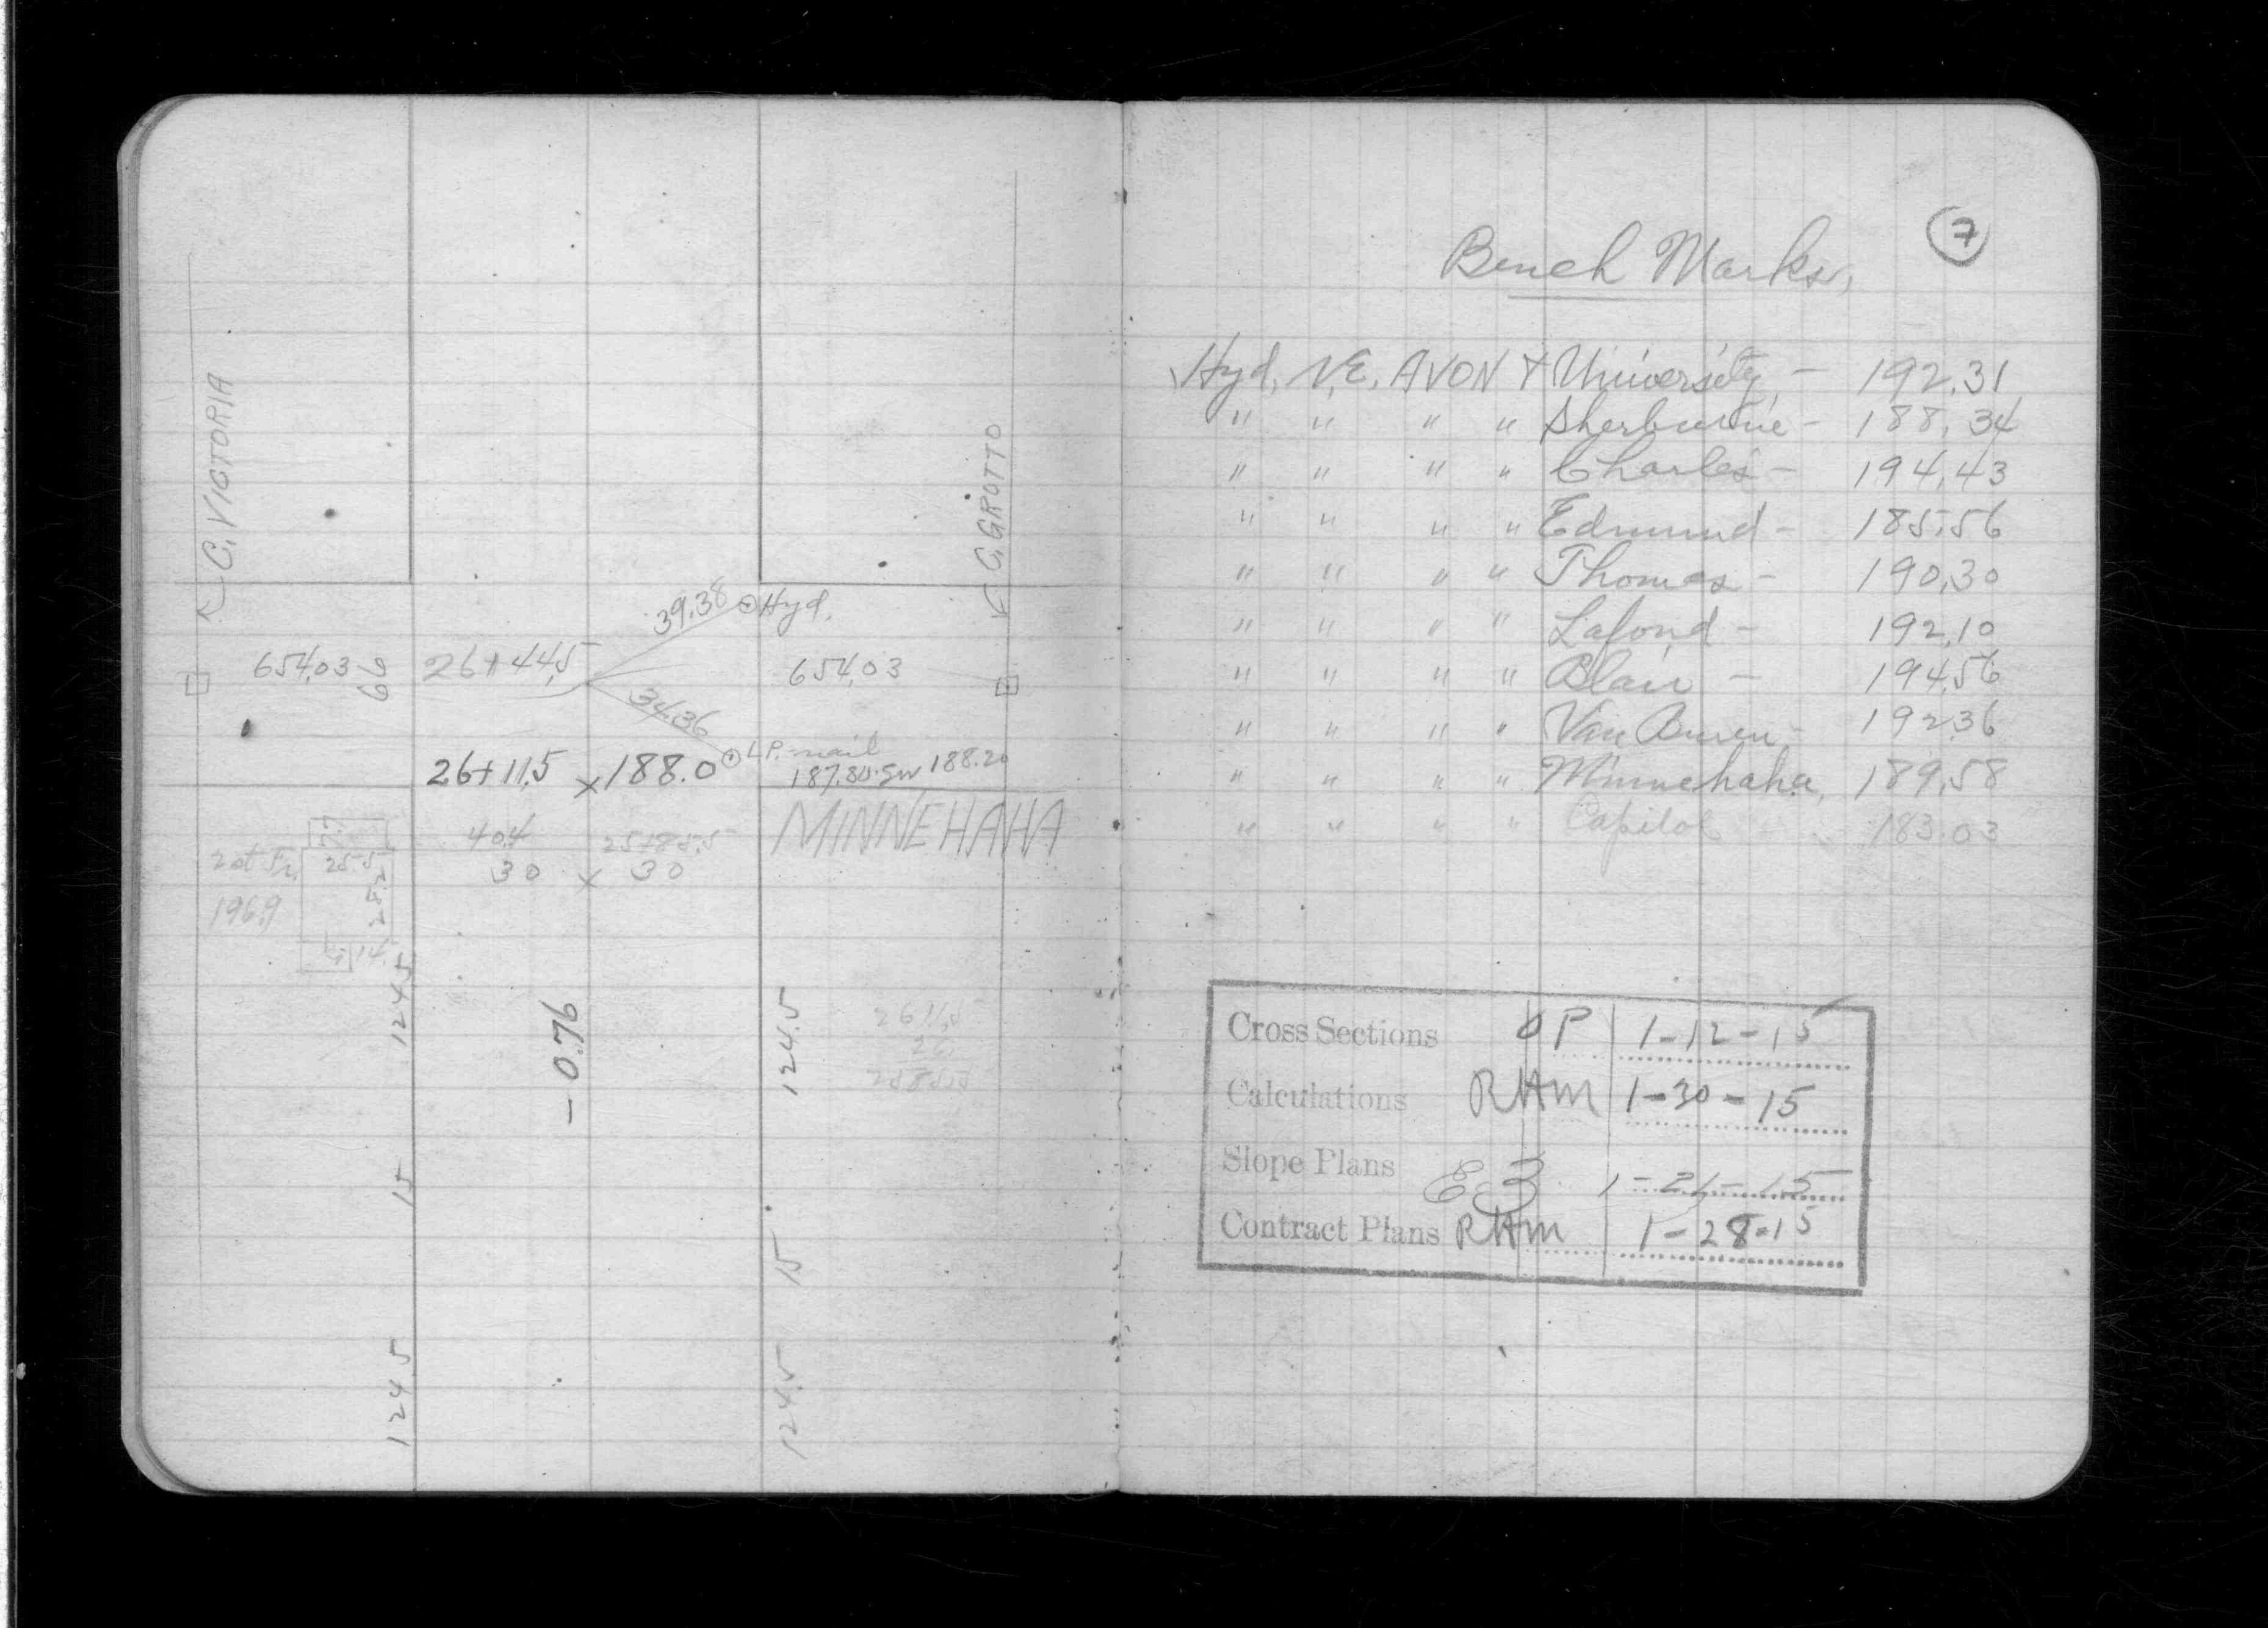 C. VICTORIA
C. GROTTO
39.38 Hyd.
654.03 66 26+44.5 654.03
34.36
L.P. nail
26+11.5 x 188.0 187.80 SW 188.20
MINNEHAHA
40.4 25+85.5
30 x 30
7.7
25.5
28.2
14
196.9
124.5
- 0.76
124.5
2611.5
26
2585.5
15
15
124.5
124.5
7
Bench Marks,
Hyd. N.E. AVON & University, - 192.31
" " " " Sherburne - 188.34
" " " " Charles - 194.43
" " " " Edmund - 185.56
" " " " Thomas - 190.30
" " " " Lafond - 192.10
" " " " Blair - 194.56
" " " " Van Buren - 192.36
" " " " Minnehaha, 189.58
" " " " Capitol 183.03
Cross Sections OP 1-12-15
Calculations RHM 1-30-15
Slope Plans 1-21-15
Contract Plans RHM 1-28-15